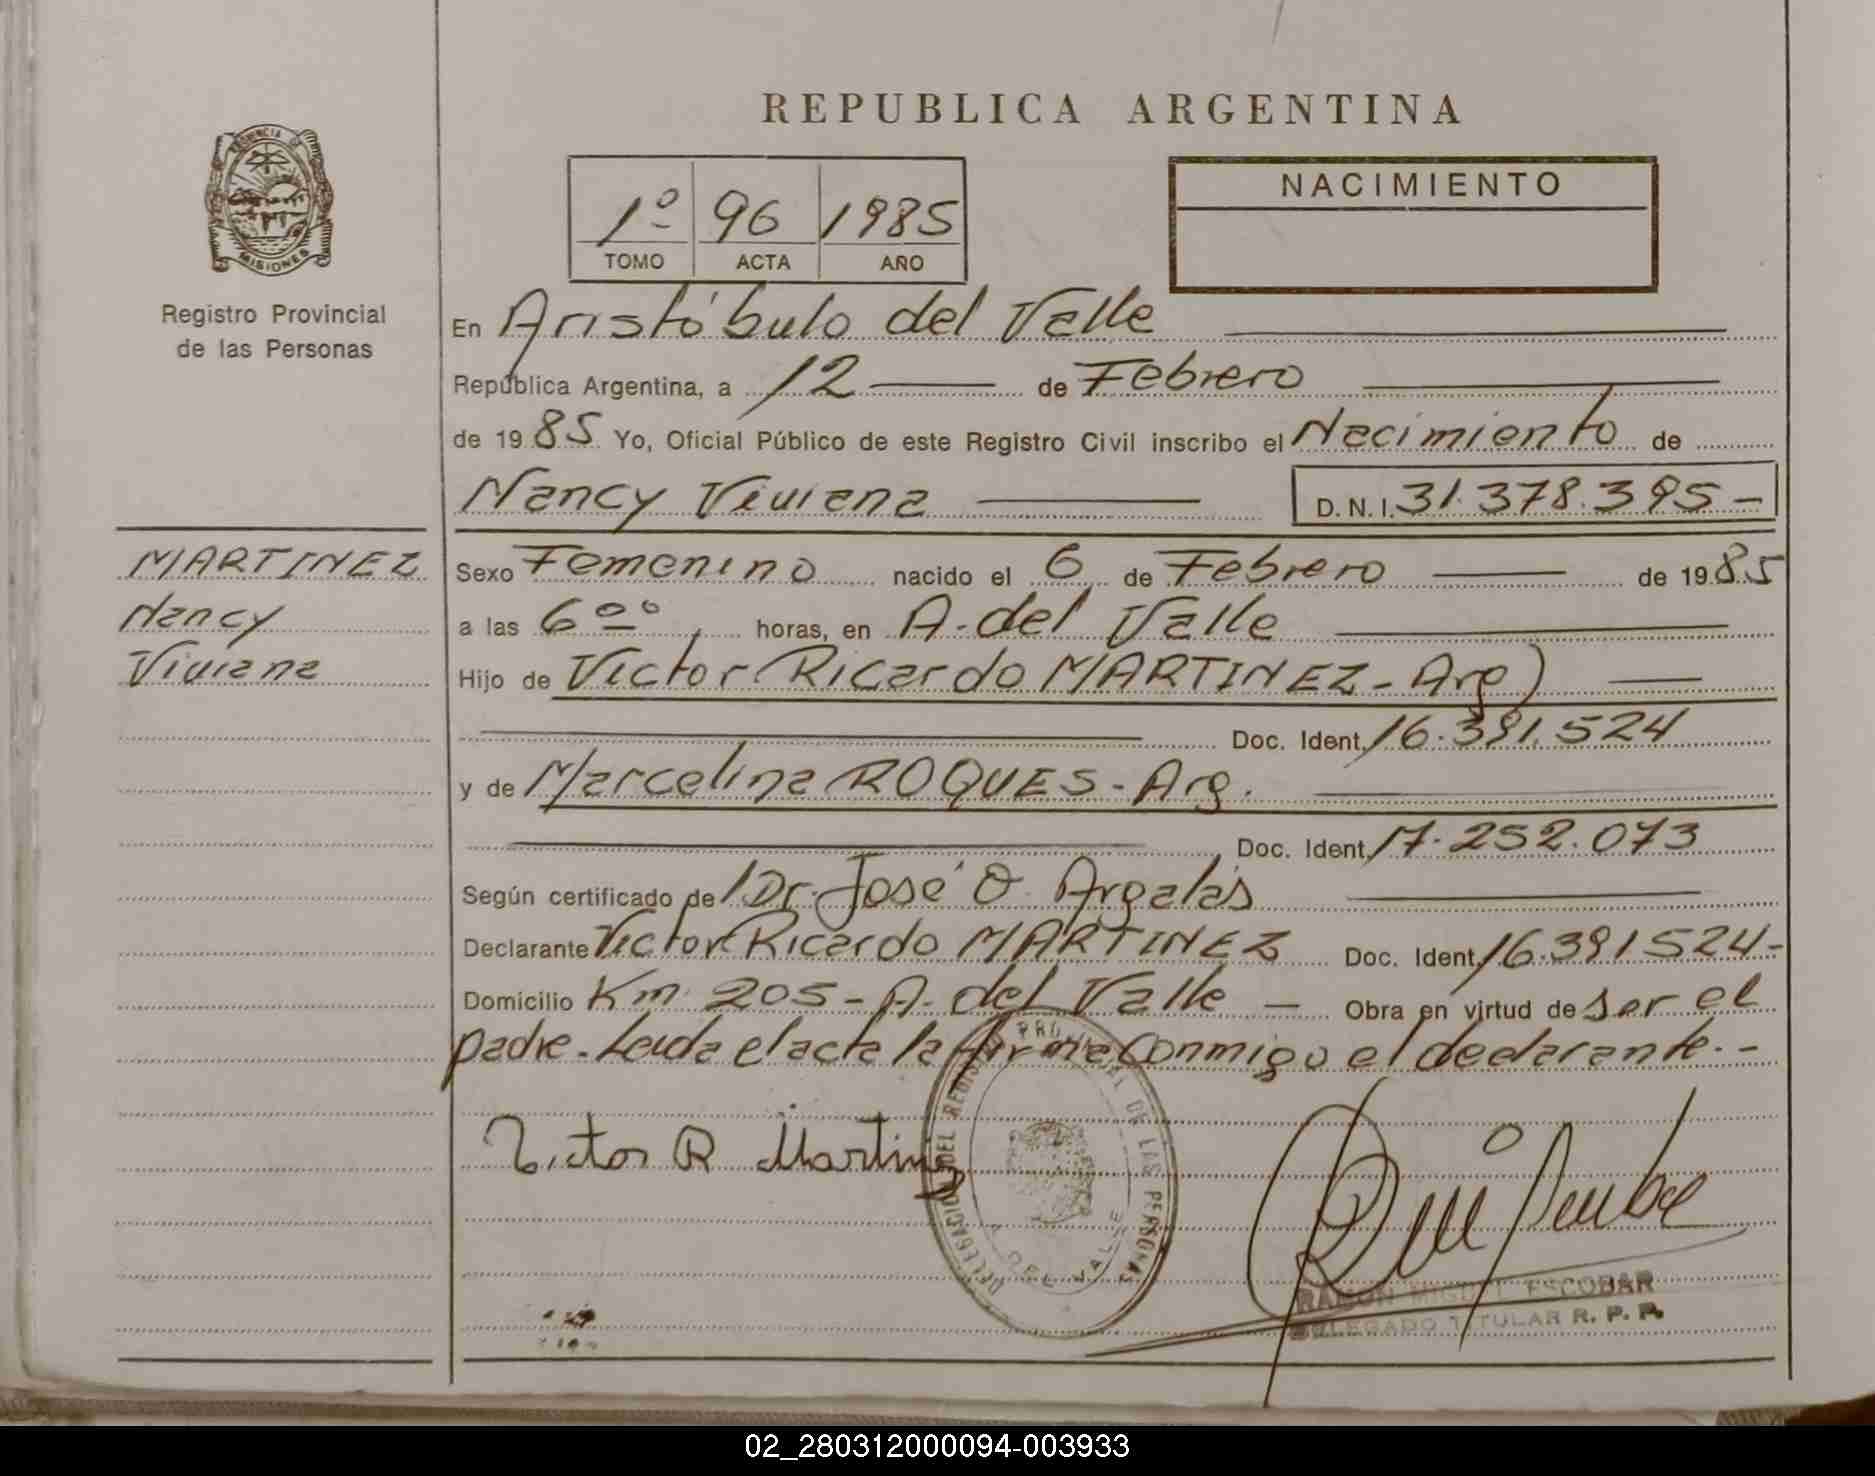 REPUBLICA ARGENTINA
PROVINCIA DE
MISIONES
Registro Provincial
de las Personas
1º 96 1985
TOMO ACTA AÑO
NACIMIENTO
En Aristóbulo del Valle
República Argentina, a 12 de Febrero
de 1985 Yo, Oficial Público de este Registro Civil inscribo el Nacimiento de
Nancy Viviana D. N. I. 31.378.395-
MARTINEZ
Nancy
Viviana
Sexo Femenino nacido el 6 de Febrero de 1985
a las 6ºº horas, en A. del Valle
Hijo de Victor Ricardo MARTINEZ - Arg)
Doc. Ident. 16.391.524
y de Marcelina ROQUES - Arg.
Doc. Ident. 17.252.073
Según certificado de Dr. José O. Argalás
Declarante Victor Ricardo MARTINEZ Doc. Ident. 16.391524-
Domicilio Km. 205 - A. del Valle - Obra en virtud de ser el
padre. Leida el acta la firma conmigo el declarante.-
Victor R Martinez
DELEGACION DEL REGISTRO PROVINCIAL DE LAS PERSONAS
A. DEL VALLE
RAMON MIGUEL ESCOBAR
DELEGADO TITULAR R. P. P.
02_280312000094-003933